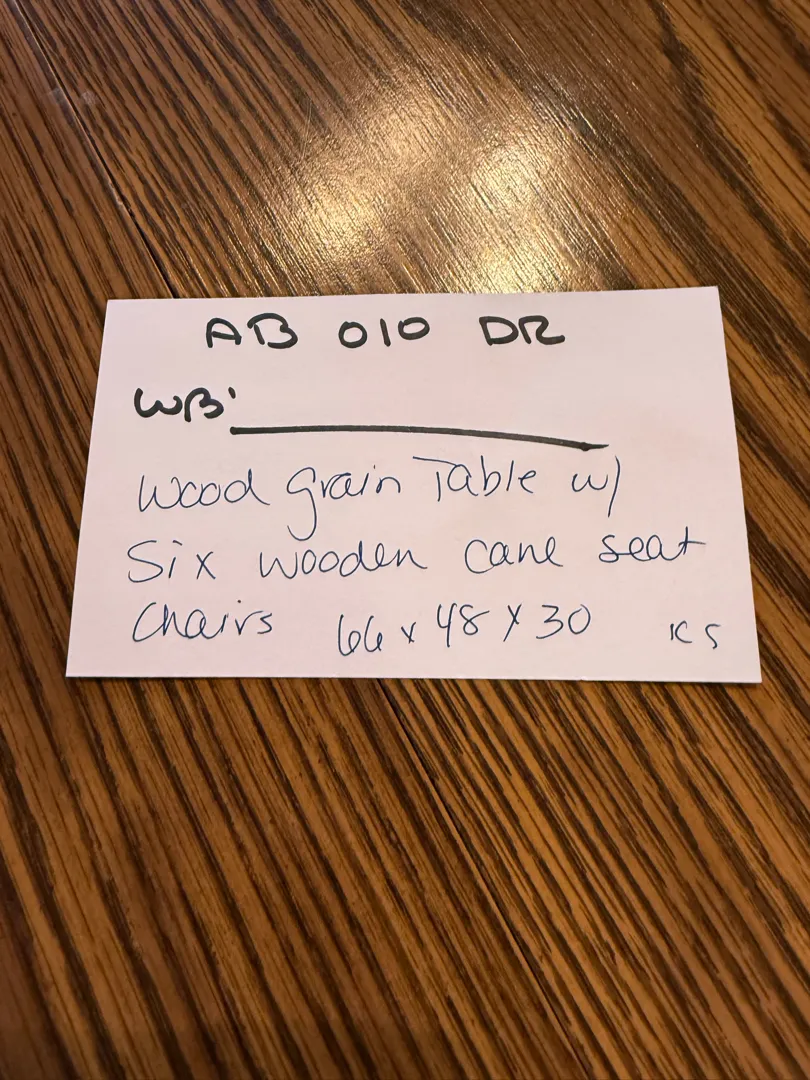 AB 010 DR
WB'
Wood grain Table w/
Six wooden cane seat
Chairs 66 x 48 x 30 KS